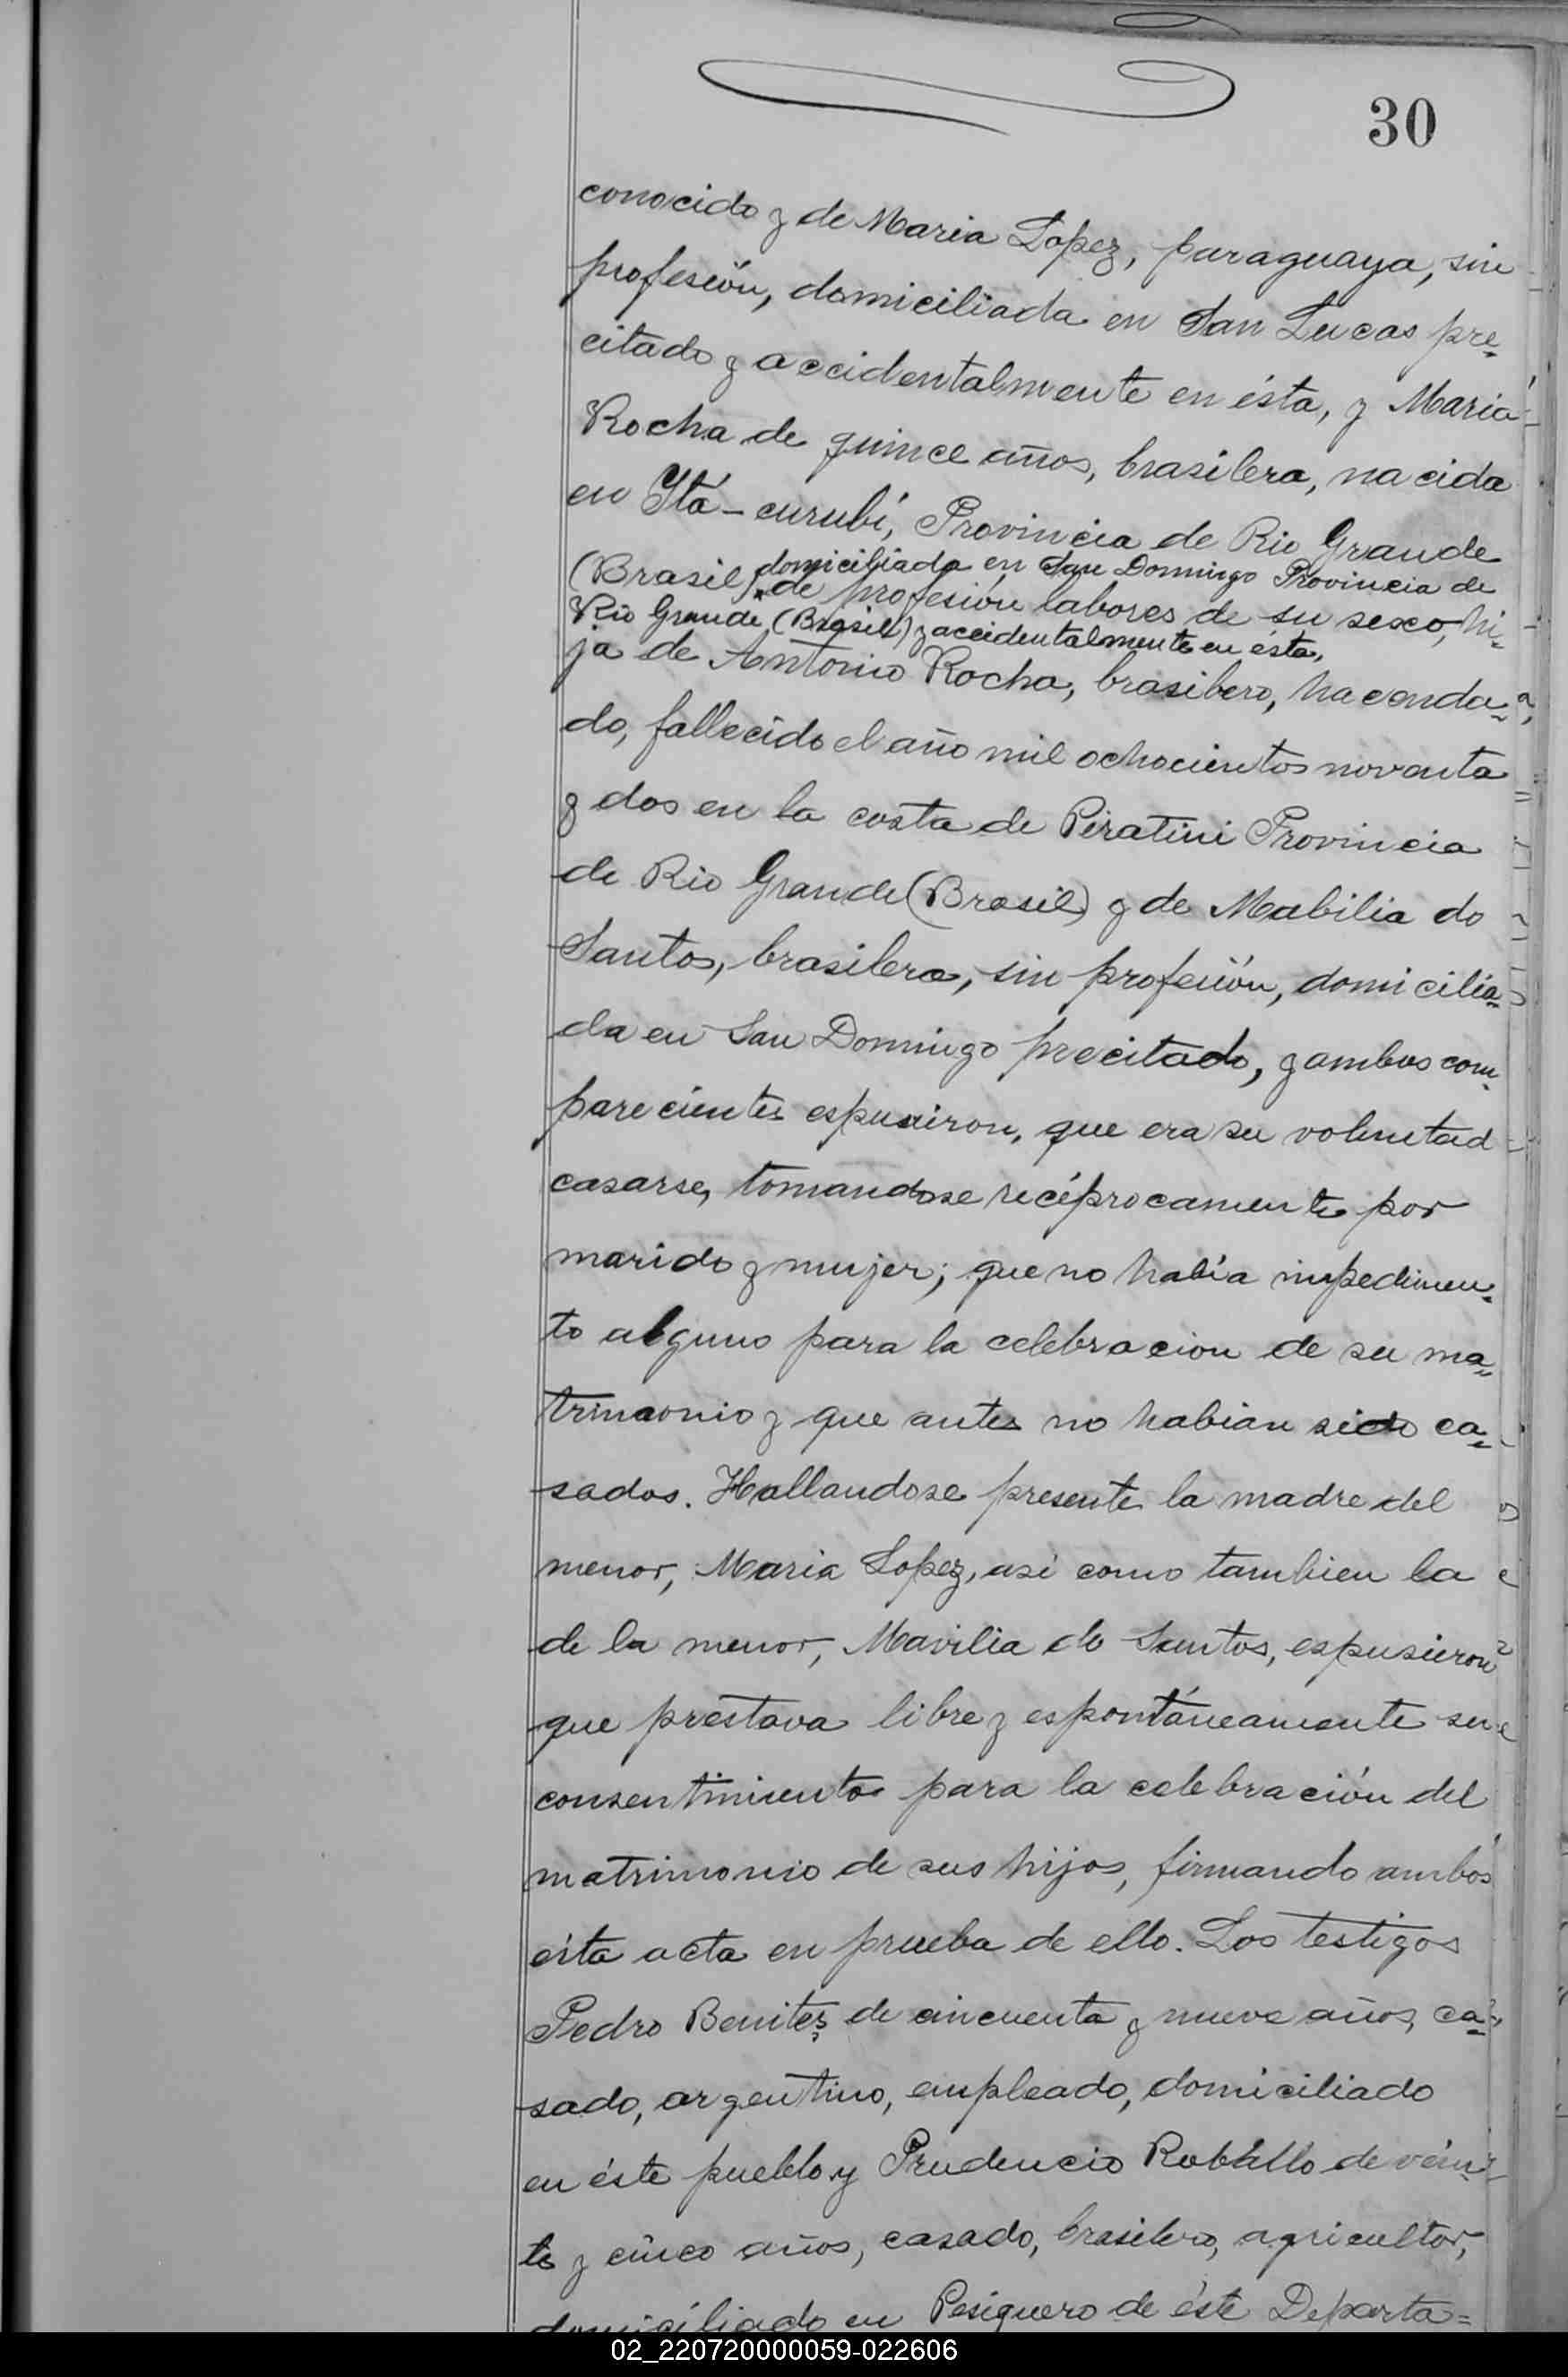 30
conocido y de Maria Lopez, paraguaya, sin
profesión, domiciliada en San Lucas pre=
citado y accidentalmente en ésta, y Maria
Rocha de quince años, brasilera, nacida
en Ytá-curubí, Provincia de Rio Grande
domiciliada en San Domingo Provincia de
(Brasil) de profesión labores de su sexo, hi=
Rio Grande (Brasil) y accidentalmente en ésta,
ja de Antonio Rocha, brasilero, hacenda=
do, fallecido el año mil ochocientos noventa
y dos en la costa de Piratini Provincia
de Rio Grande (Brasil) y de Mabilia do
Santos, brasilera, sin profesión, domicilia=
da en San Domingo precitado, y ambos com=
parecientes espusiron, que era su voluntad
casarse, tomandose recíprocamente por
marido y mujer; que no había impedimen=
to alguno para la celebracion de su ma=
trimonio y que antes no habian sido ca=
sados. Hallandose presente la madre del
menor, Maria Lopez, asi como tambien la
de la menor, Mavilia do Santos, espusieron
que prestava libre y espontáneamente su
consentimiento para la celebración del
matrimonio de sus hijos, firmando ambos
esta acta en prueba de ello. Los testigos
Pedro Benites de cincuenta y nueve años, ca=
sado, argentino, empleado, domiciliado
en éste pueblo y Prudencio Roballo de vein=
te y cinco años, casado, brasilero, agricultor,
domiciliado en Pesiguero de éste Departa=
02_220720000059-022606